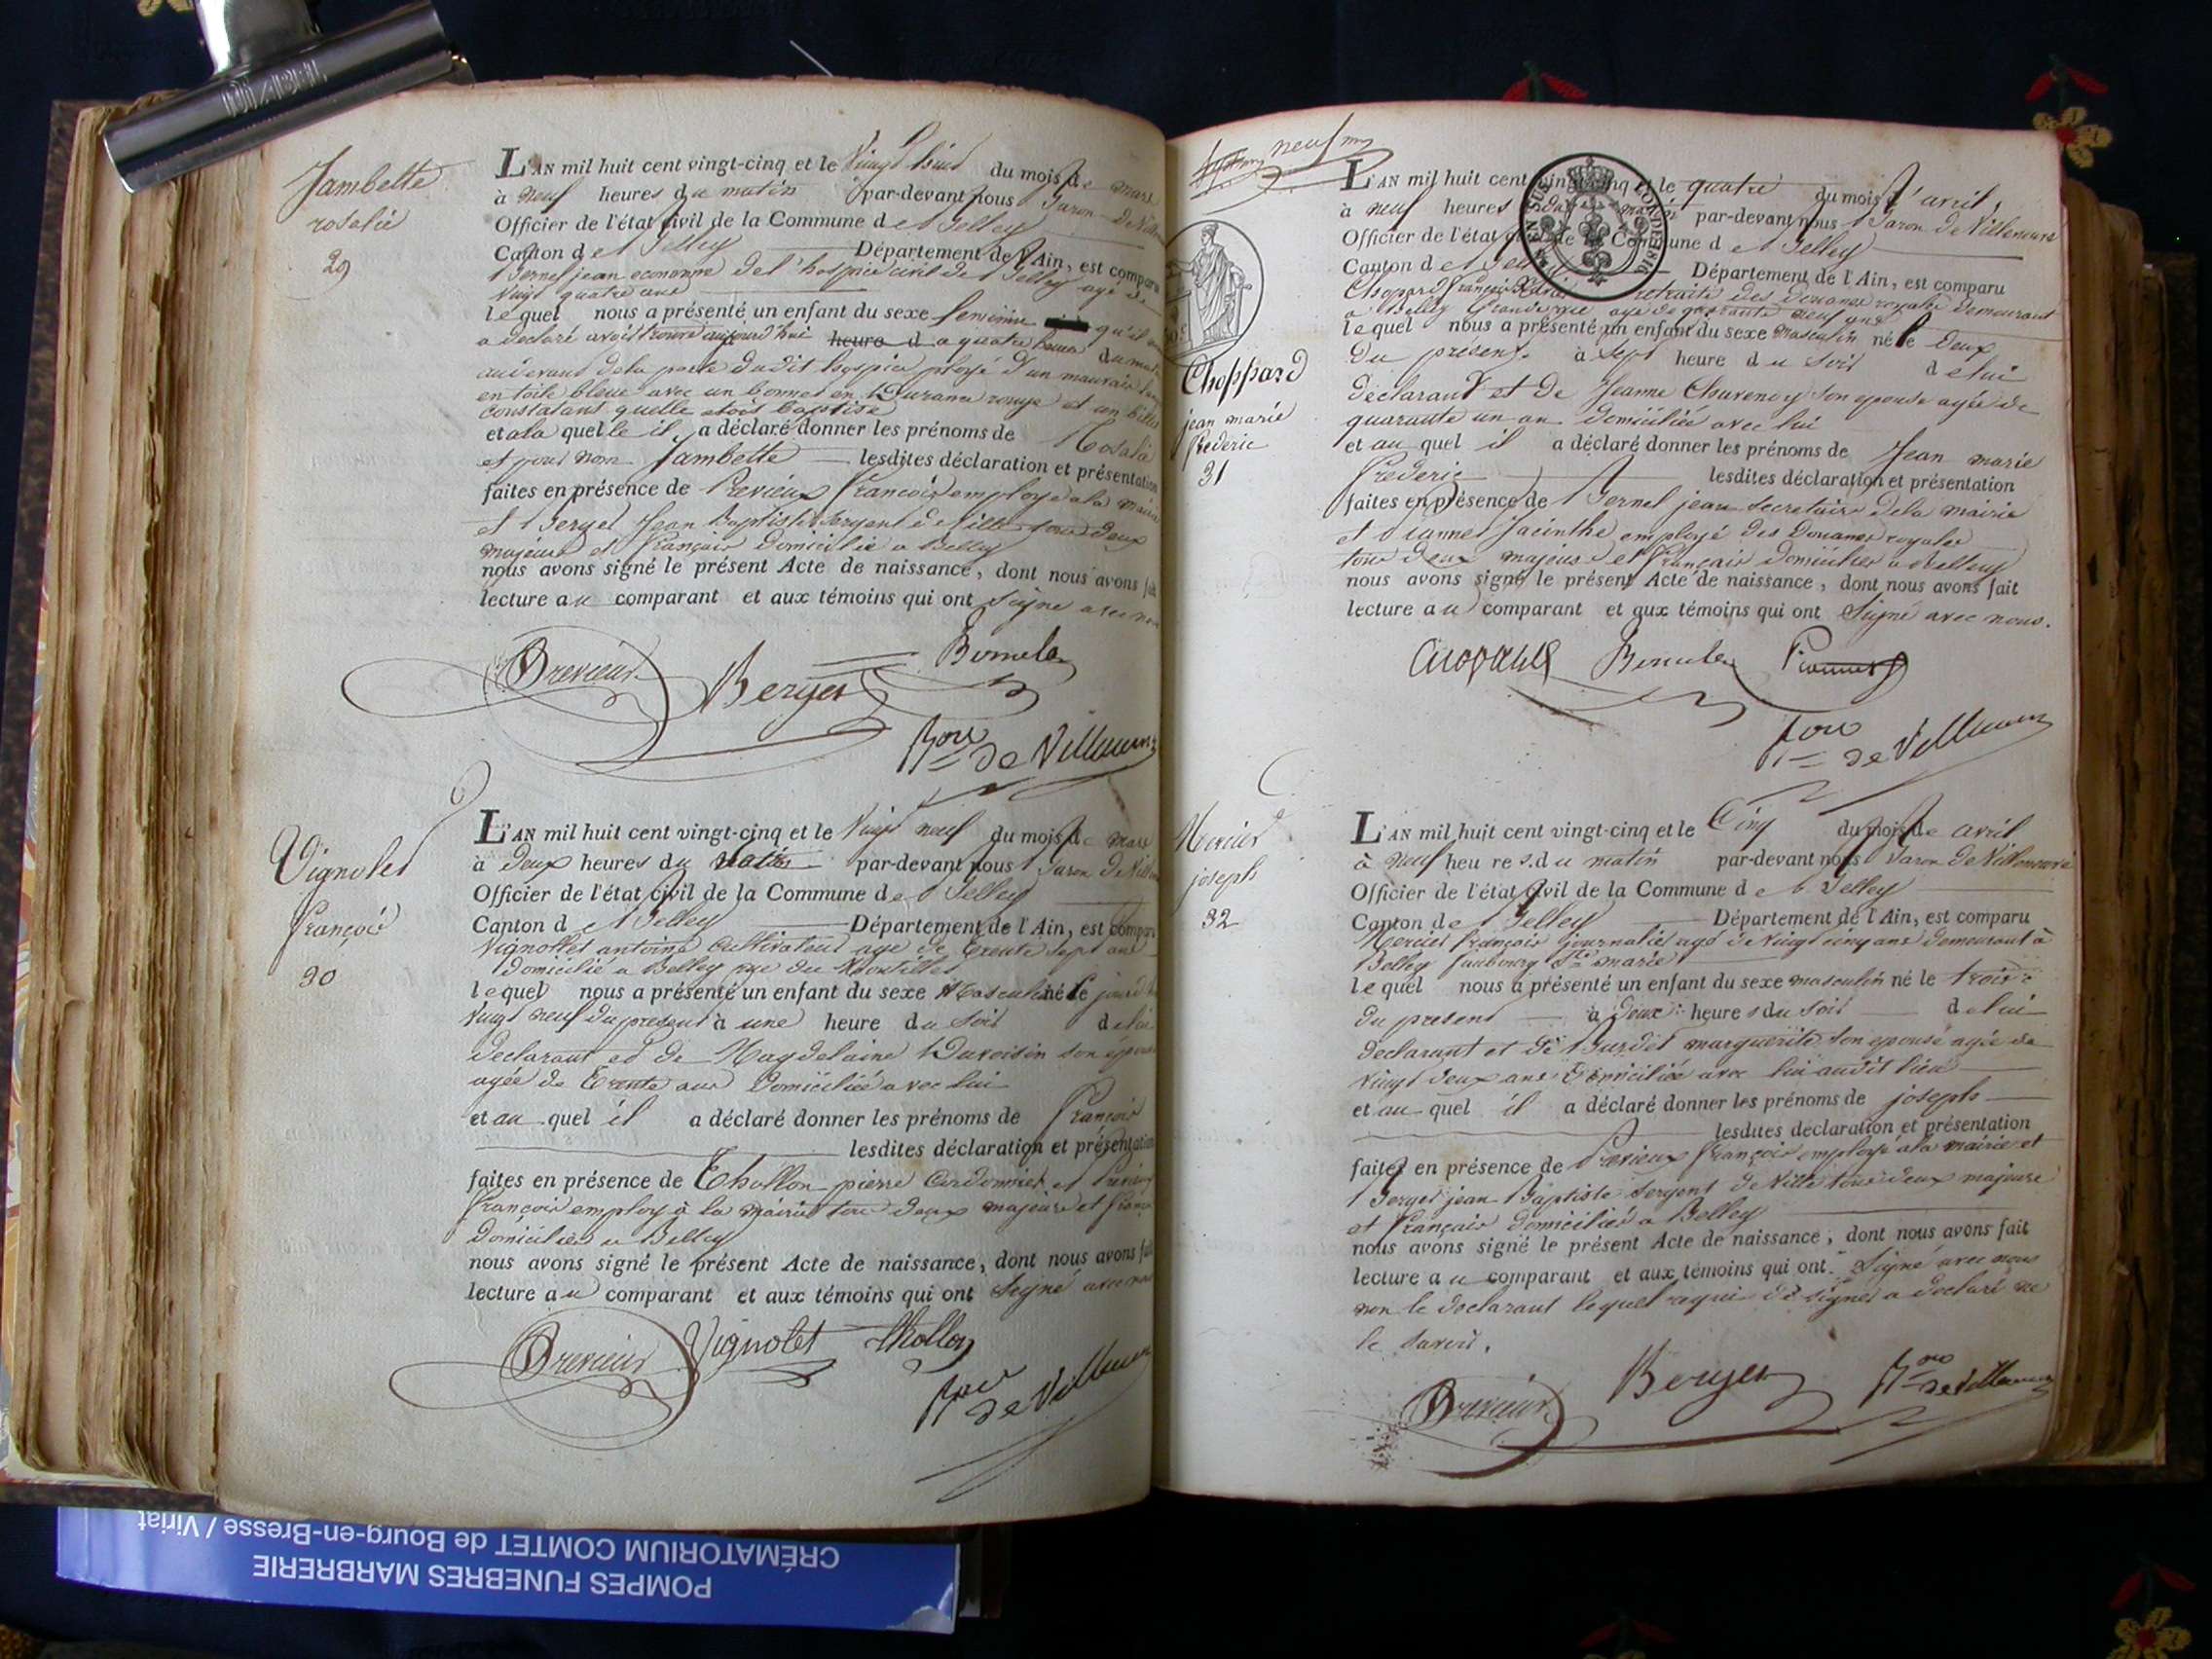 DIABEL
Jambette
rosalie
29
L'AN mil huit cent vingt-cinq et le Vingt huit du mois de mars
à neuf heures du matin par-devant nous Baron De
Officier de l'état civil de la Commune de Belley
Canton de Belley Département de l'Ain, est comparu
Bernel jean econome de l'hospice civil de Belley agé de
Vingt quatre ans
lequel nous a présenté un enfant du sexe feminin qu'il
a declaré avoir trouvé aujourd'hui heure d a quatre heures du
au devant de la porte dudit hospice ployé d'un mauvais
en toile bleue avec un bonnet en rouge et un billet
constatant quelle etoit baptisé
et a la quelle il a déclaré donner les prénoms de Rosalie
et pour nom Jambette lesdites déclaration et présentation
faites en présence de Previeux francois employé a la mairie
et Berger Jean Baptiste sergent de Ville tous deux
majeurs et français domicilié a Belley
nous avons signé le présent Acte de naissance, dont nous avons fait
lecture au comparant et aux témoins qui ont Signé avec
Previeux Berger
Bon de Villeneuve
Vignolet
François
30
L'AN mil huit cent vingt-cinq et le Vingt neuf du mois de mars
à deux heures du par-devant nous Baron De
Officier de l'état civil de la Commune de Belley
Canton de Belley Département de l'Ain, est comparu
Vignollet antoine Cultivateur agé de trente sept ans
domicilié a Belley rue du
lequel nous a présenté un enfant du sexe Masculin né le
Vingt neuf du present à une heure du soir de lui
declarant et de Magdelaine Duvoisin son épouse
agée de trente ans domiciliée avec lui
et au quel il a déclaré donner les prénoms de François
lesdites déclaration et présentation
faites en présence de Thollon pierre Cordonnier et Previeux
françois employ à la mairie tous deux majeurs et
domiciliés a Belley
nous avons signé le présent Acte de naissance, dont nous avons fait
lecture au comparant et aux témoins qui ont Signé avec
Previeux Vignolet thollon
Bon de Villeneuve
neuf
Choppard
jean marie
frederic
31
L'AN mil huit cent vingt-cinq et le quatre du mois d'avril,
à neuf heures du matin par-devant nous Baron De Villeneuve
Officier de l'état civil de la Commune de Belley
Canton de Belley Département de l'Ain, est comparu
Chopard françois retraité des douanes royales demeurant
a Belley Grande rue agé de quarante neuf ans
lequel nous a présenté un enfant du sexe masculin né le Deux
du présent à sept heure du soir de lui
declarant et de Jeanne Chuvenoy son epouse agée de
quarante un an domiciliée avec lui
et au quel il a déclaré donner les prénoms de Jean marie
frederic lesdites déclaration et présentation
faites en présence de Bernel jean secretaire de la mairie
et Jacinthe employé des Douanes royales
tous deux majeurs et français domiciliés a Belley
nous avons signé le présent Acte de naissance, dont nous avons fait
lecture au comparant et aux témoins qui ont Signé avec nous.
Bon de Villeneuve
Mercier
joseph
32
L'AN mil huit cent vingt-cinq et le Cinq du mois de avril
à neuf heures du matin par-devant nous Baron De Villeneuve
Officier de l'état civil de la Commune de Belley
Canton de Belley Département de l'Ain, est comparu
Mercier françois journalié agé de vingt cinq ans demeurant à
Belley faubourg Ste marie
lequel nous a présenté un enfant du sexe masculin né le trois
du present à deux heures du soir de lui
declarant et de Burdet marguerite son epouse agée de
vingt deux ans domiciliée avec lui audit lieu
et au quel il a déclaré donner les prénoms de joseph
lesdites déclaration et présentation
faites en présence de Previeux françois employé a la mairie et
Berger jean Baptiste Sergent de Ville tous deux majeurs
et français domiciliés a Belley
nous avons signé le présent Acte de naissance, dont nous avons fait
lecture au comparant et aux témoins qui ont Signé avec nous
non le declarant lequel requis de signer a declaré ne
le savoir.
Previeux Berger Bon de Villeneuve
POMPES FUNEBRES MARBRERIE
CRÉMATORIUM COMTET de Bourg-en-Bresse / Viriat